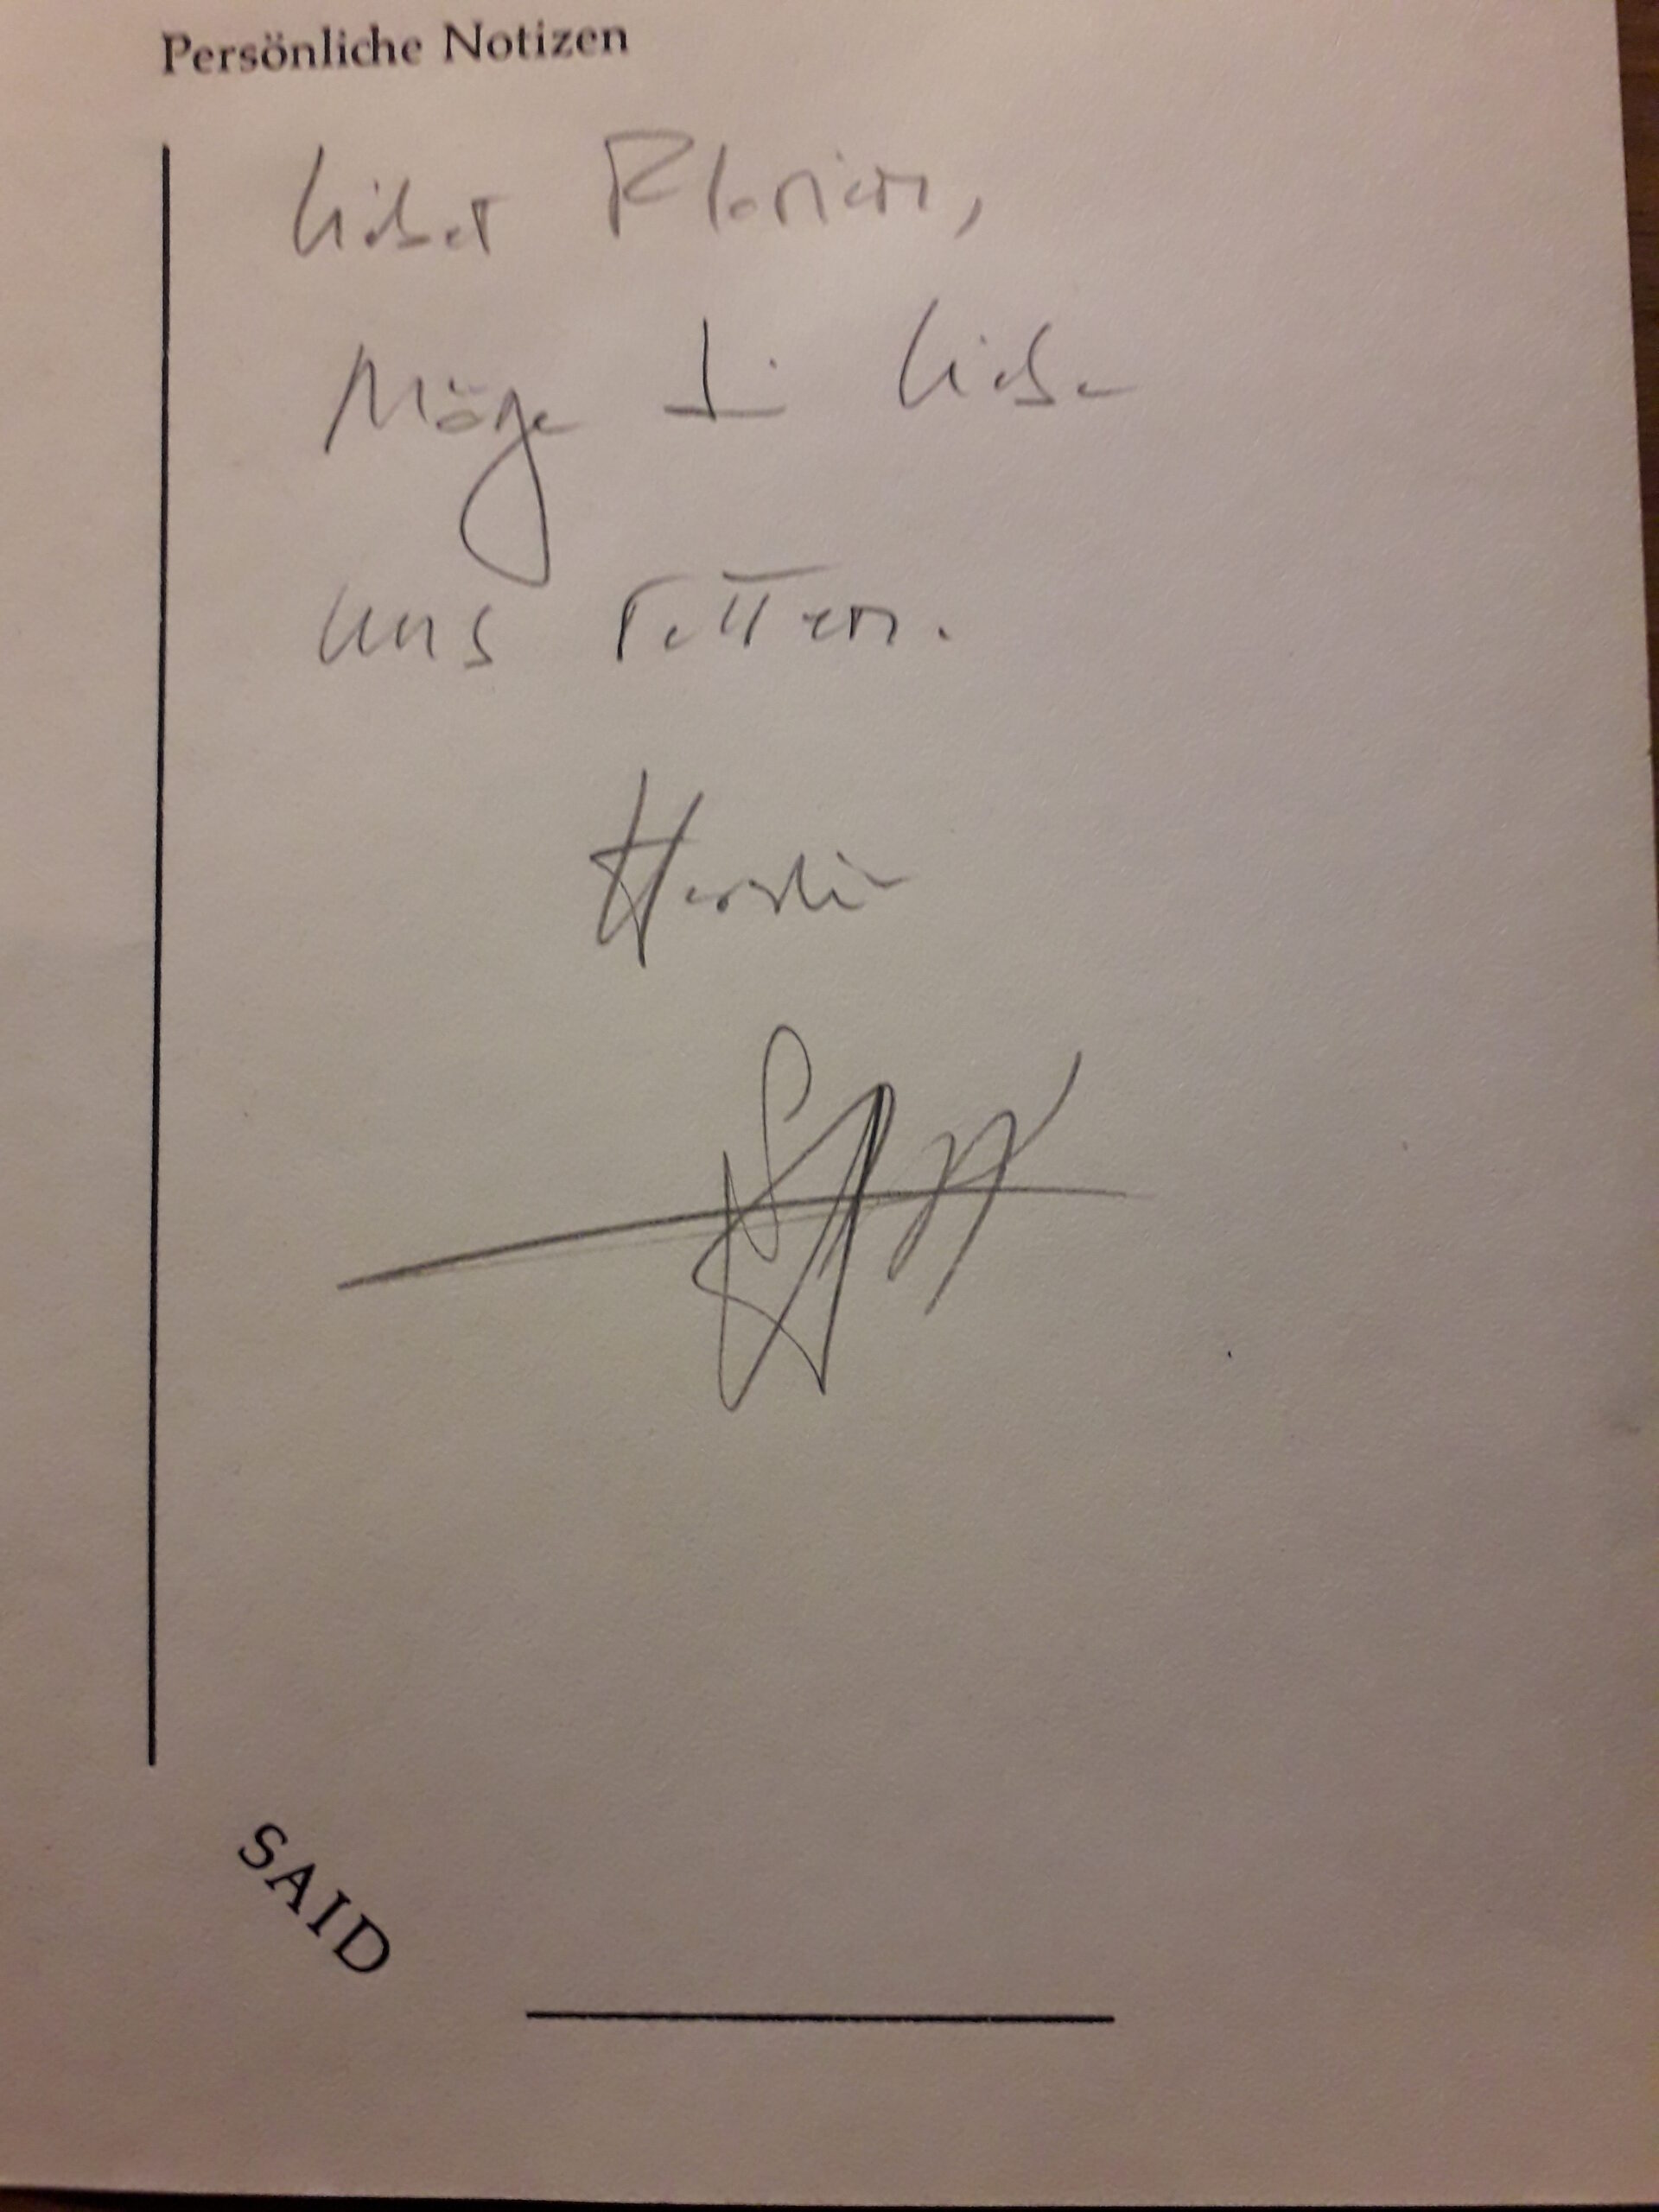 Persönliche Notizen
Lieber Florian,
Möge die Liebe
uns retten.
Herzlich
SAID